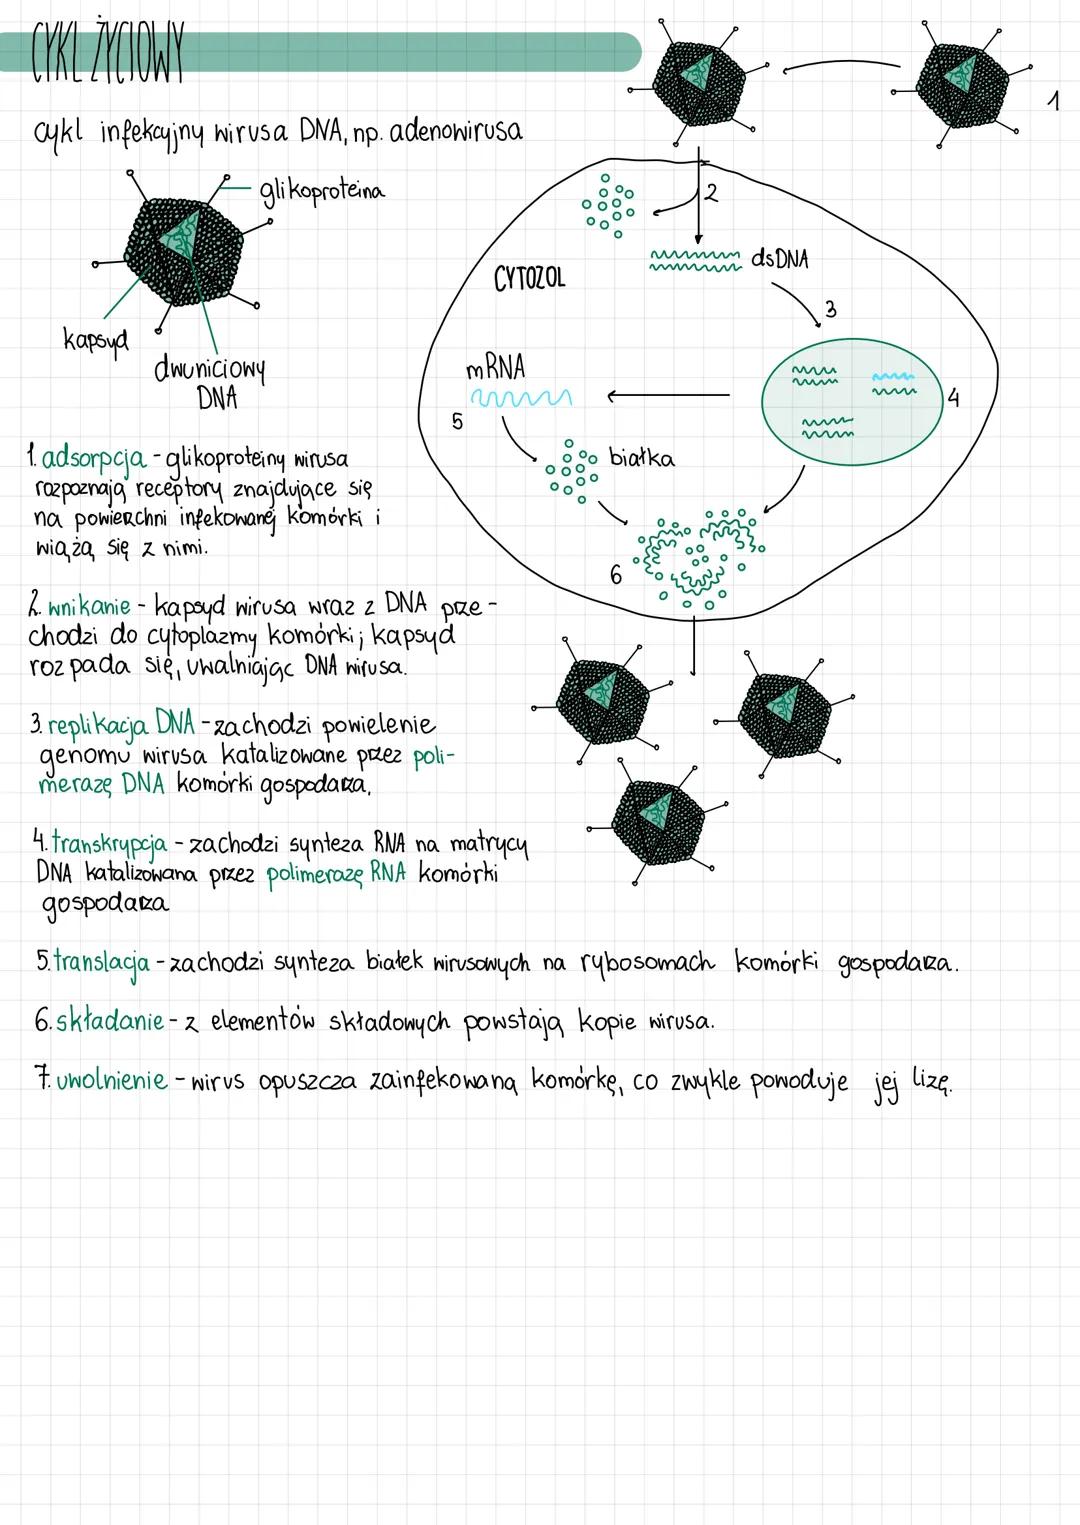 CYKL ŻYCIOWY
cykl infekcyjny wirusa DNA, np. adenowirusa
glikoproteina
kapsyd
dwuniciowy
DNA
1
2
dsDNA
CYTOZOL
3
mRNA
4
5
białka
6
1. adsorpcja - glikoproteiny wirusa
rozpoznają receptory znajdujące się
na powierzchni infekowanej komórki i
wiążą się z nimi.
2. wnikanie - kapsyd wirusa wraz z DNA prze-
chodzi do cytoplazmy komórki; kapsyd
rozpada się, uwalniając DNA wirusa.
3. replikacja DNA - zachodzi powielenie
genomu wirusa katalizowane przez poli-
merazę DNA komórki gospodarza,
4. transkrypcja - zachodzi synteza RNA na matrycy
DNA katalizowana przez polimerazę RNA komórki
gospodarza
5. translacja - zachodzi synteza białek wirusowych na rybosomach komórki gospodarza.
6. składanie - z elementów składowych powstają kopie wirusa.
7. uwolnienie - wirus opuszcza zainfekowaną komórkę, co zwykle powoduje jej lizę.